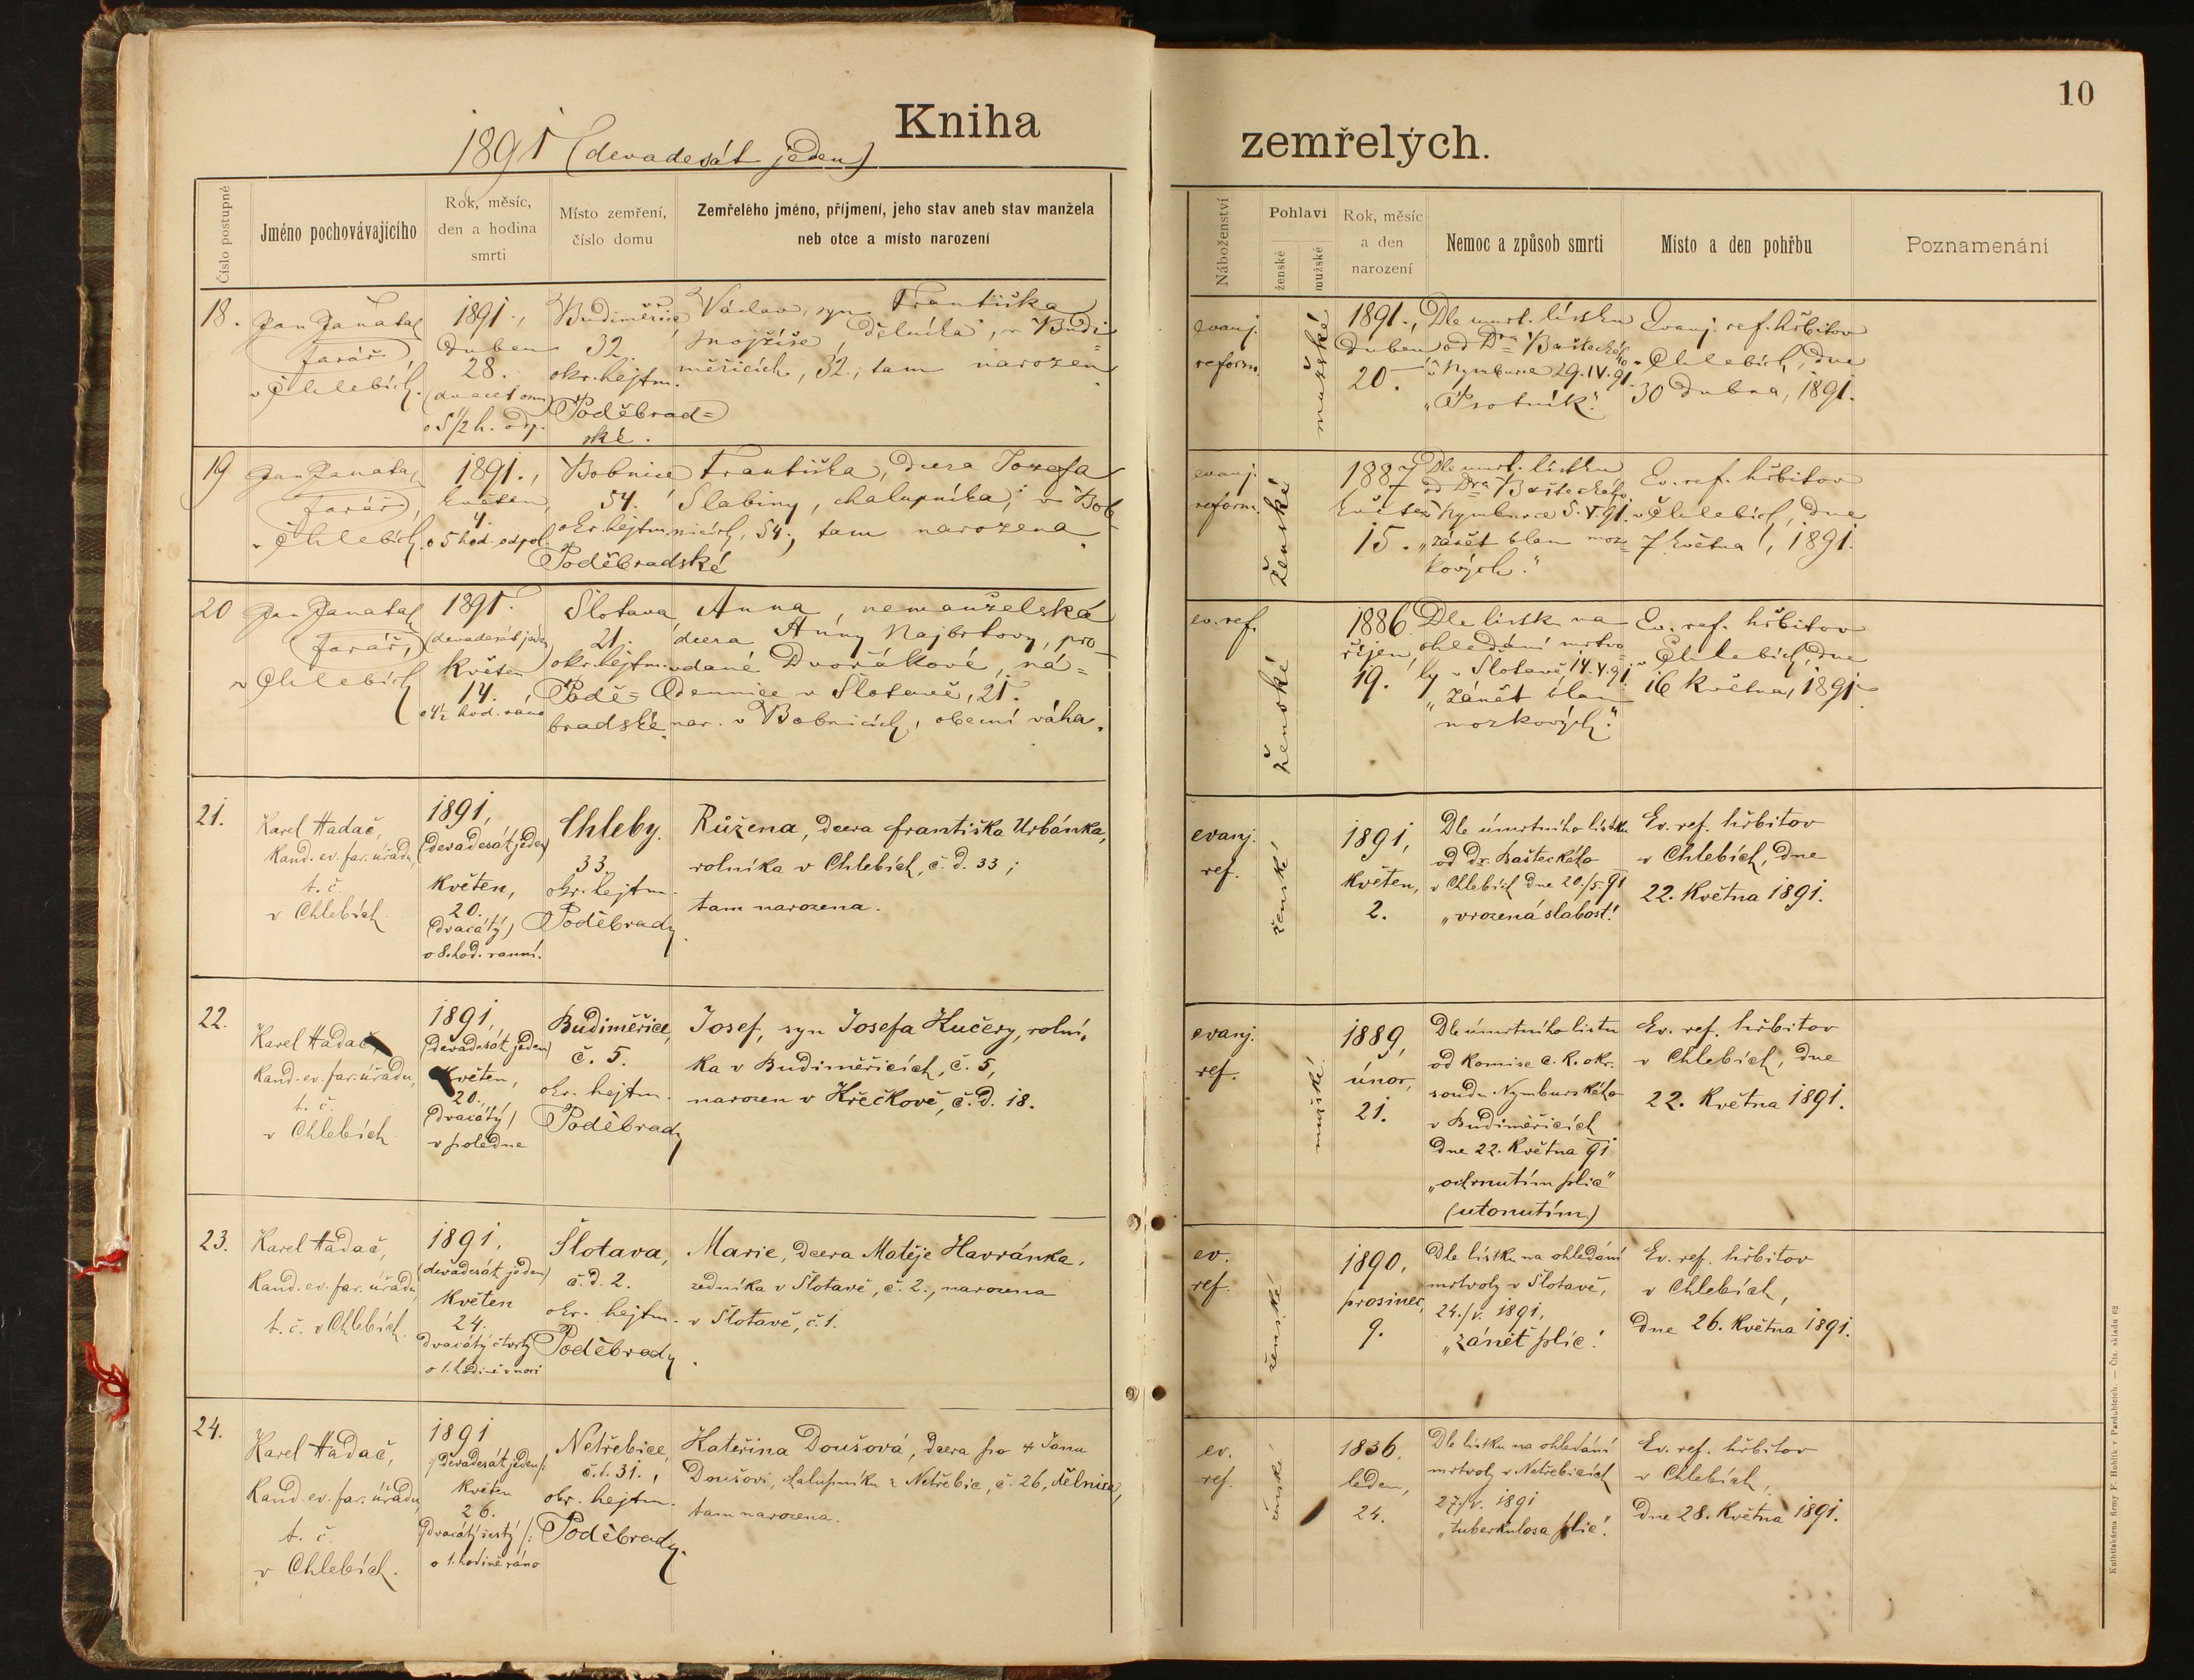 10
1891 (devadesát jeden)
Kniha
zemřelých.
Číslo postupné
Jméno pochovávajícího
Rok, měsíc,
den a hodina
smrti
Místo zemření,
číslo domu
Zemřelého jméno, příjmení, jeho stav aneb stav manžela
neb otce a místo narození
Náboženství
Pohlaví
ženské
mužské
Rok, měsíc
a den
narození
Nemoc a způsob smrti
Místo a den pohřbu
Poznamenání
18.
Jan Janata
farář
v Chlebích.
1891.,
Duben
28.
(dvacet osm)
o 5/2 h. odp.
Budiměřice,
32.
okr. hejtm.
Poděbrad=
ské.
Václav, syn Františka
Mojžíše, dělníka, v Budi=
měřicích, 32., tam narozen.
evanj.
reform.
mužské
1891.,
Duben
20.
Dle úmrt. lístku
od Dra Bašteckého
v Nymburce 29. IV. 91.
„Psotník".
Evanj. ref. hřbitov
v Chlebích, dne
30 Dubna, 1891.
19
Jan Janata
farář,
v Chlebích.
1891.,
květen,
4.
o 5 hod. odpol.
Bobnice
54.
okr. hejtm.
Poděbradské
Františka, dcera Josefa
Slabiny, chalupníka, v Bob-
nicích, 54.; tam narozena.
evanj.
reform.
ženské
1887
květen
15.
Dle úmrt. lístku
od Dra Bašteckého
v Nymburce 5. V. 91.
„zánět blan moz=
kových."
Ev. ref. hřbitov
v Chlebích, dne
7 května, 1891.
20
Jan Janata
farář,
v Chlebích
1891.
(devadesát jeden)
Květen
14.
o 4½ hod. ráno
Šlotava
21.
okr. hejtm.
Podě=
bradské.
Anna, nemanželská
dcera Anny Najbrtovy, pro-
vdané Dvořákové, ná=
dennice v Šlotavě, 21.
nar. v Bobnicích, obecní váha.
ev. ref.
ženské
1886.
říjen,
19.
Dle lístk na
ohledání mrtvo
ly v Šlotavě 14. V. 91.
„Zánět blan
mozkových".
Ev. ref. hřbitov
v Chlebích, dne
16 Května, 1891.
21.
Karel Hadač,
Kand. ev. far. úřadu,
t. č.
v Chlebích
1891,
(devadesát jeden)
Květen,
20.
(dvacátý)
o 8. hod. ranní.
Chleby.
33.
okr. hejtm.
Poděbrady.
Růžena, dcera Františka Urbánka,
rolníka v Chlebích, č. d. 33;
tam narozena.
evanj.
ref.
ženské
1891,
Květen,
2.
Dle úmrtního lístku
od Dr. Bašteckého
v Chlebích dne 20./5. 91
„vrozená slabost."
Ev. ref. hřbitov
v Chlebích, dne
22. Května 1891.
22.
Karel Hadač,
Kand. ev. far. úřadu,
t. č.
v Chlebích
1891,
(devadesát jeden)
Květen,
20.,
(dvacátý)
v poledne
Budiměřice,
č. 5.
okr. hejtm.
Poděbrady
Josef, syn Josefa Kučery, rolní,
ka v Budiměřicích, č. 5,
narozen v Křečkově, č. d. 18.
evanj.
ref.
mužské
1889,
únor,
21.
Dle úmrtního listu
od komise c. k. okr.
soudu Nymburského
v Budiměřicích
dne 22. Května 91
„ochrnutím plic"
(utonutím)
Ev. ref. hřbitov
v Chlebích, dne
22. Května 1891.
23.
Karel Hadač,
Kand. ev. far. úřadu,
t. č. v Chlebích.
1891,
(devadesát jeden)
Květen
24.
dvacátý čtvrtý
o 1. hodině v noci
Šlotava,
č. d. 2.
okr. hejtm.
Poděbrady.
Marie, dcera Matěje Havránka,
zedníka v Šlotavě, č. 2., narozena
v Šlotavě, č. 1.
ev.
ref.
ženské
1890,
prosinec,
9.
Dle lístku na ohledání
mrtvoly v Šlotavě,
24./V. 1891,
„zánět plic."
Ev. ref. hřbitov
v Chlebích,
Dne 26. Května 1891.
24.
Karel Hadač,
Kand. ev. far. úřadu,
t. č.
v Chlebích.
1891
/:devadesát jeden:/
Květen
26.
/:dvacátý šestý/:
o 1. hodině ráno
Netřebice,
č. d. 31.,
okr. hejtm.
Poděbrady.
Kateřina Doušová, dcera po Janu
Doušovi, chalupníku z Netřebic, č. 26, dělnice,
tam narozena.
ev.
ref.
ženské
1836,
leden,
24.
Dle lístku na ohledání
mrtvoly v Netřebicích
27./V. 1891
„tuberkulosa plic".
Ev. ref. hřbitov
v Chlebích,
Dne 28. Května 1891.
Knihtiskárna firmy F. Hoblík v Pardubicích. — Čís. skladu 62